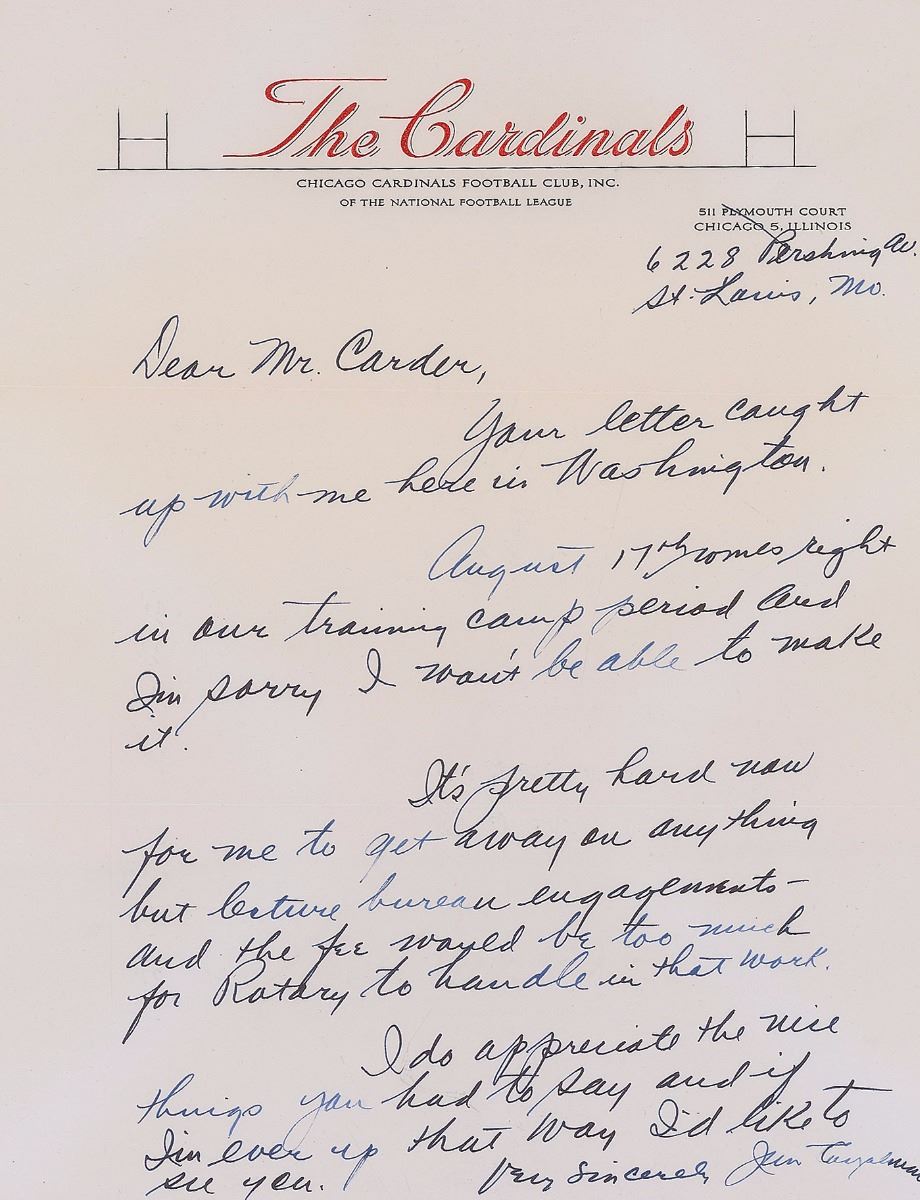 The Cardinals
CHICAGO CARDINALS FOOTBALL CLUB, INC.
OF THE NATIONAL FOOTBALL LEAGUE
511 PLYMOUTH COURT
CHICAGO 5, ILLINOIS
6228 Pershing Av.
St. Louis, Mo.
Dear Mr. Carder,
Your letter caught
up with me here in Washington.
August 17th comes right
in our training camp period and
I'm sorry I won't be able to make
it.
It's pretty hard now
for me to get away on anything
but lecture bureau engagements-
and the fee would be too much
for Rotary to handle in that work.
I do appreciate the nice
things you had to say and if
I'm ever up that way I'd like to
see you.
Very Sincerely Jim